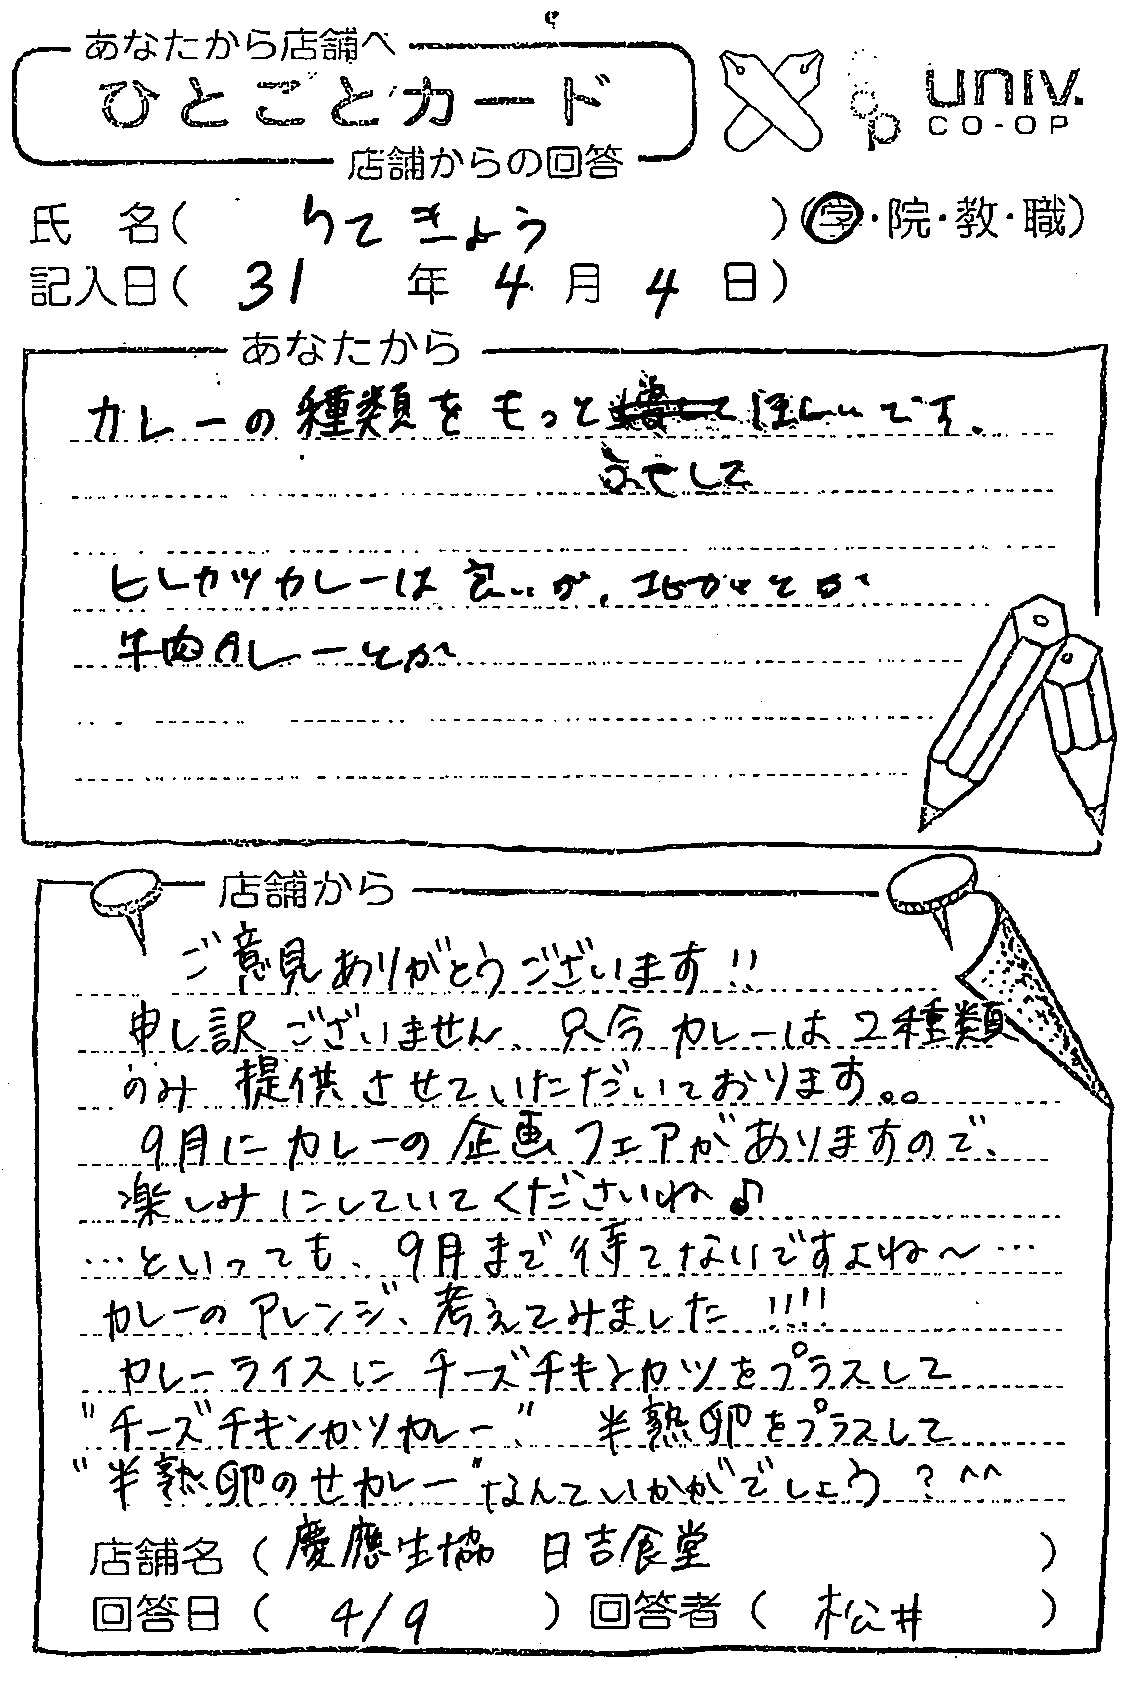 あなたから店舗へ
ひとことカード
店舗からの回答
univ.
CO-OP
氏 名( りてきょう )(学・院・教・職)
記入日( 31 年 4 月 4 日)
あなたから
カレーの種類をもっと ほしいです。
ふやして
ヒレカツカレーは良いが、ほかとか
牛肉カレーとか
店舗から
ご意見ありがとうございます!!
申し訳ございません、只今カレーは2種類
のみ提供させていただいております。。
9月にカレーの企画フェアがありますので、
楽しみにしていてくださいね♪
…といっても、9月まで待てないですよね〜…
カレーのアレンジ、考えてみました!!!!
カレーライスにチーズチキンカツをプラスして
"チーズチキンカツカレー"、 半熟卵をプラスして
"半熟卵のせカレー"なんていかがでしょう?^^
店舗名( 慶應生協 日吉食堂 )
回答日( 4/9 ) 回答者( 松井 )